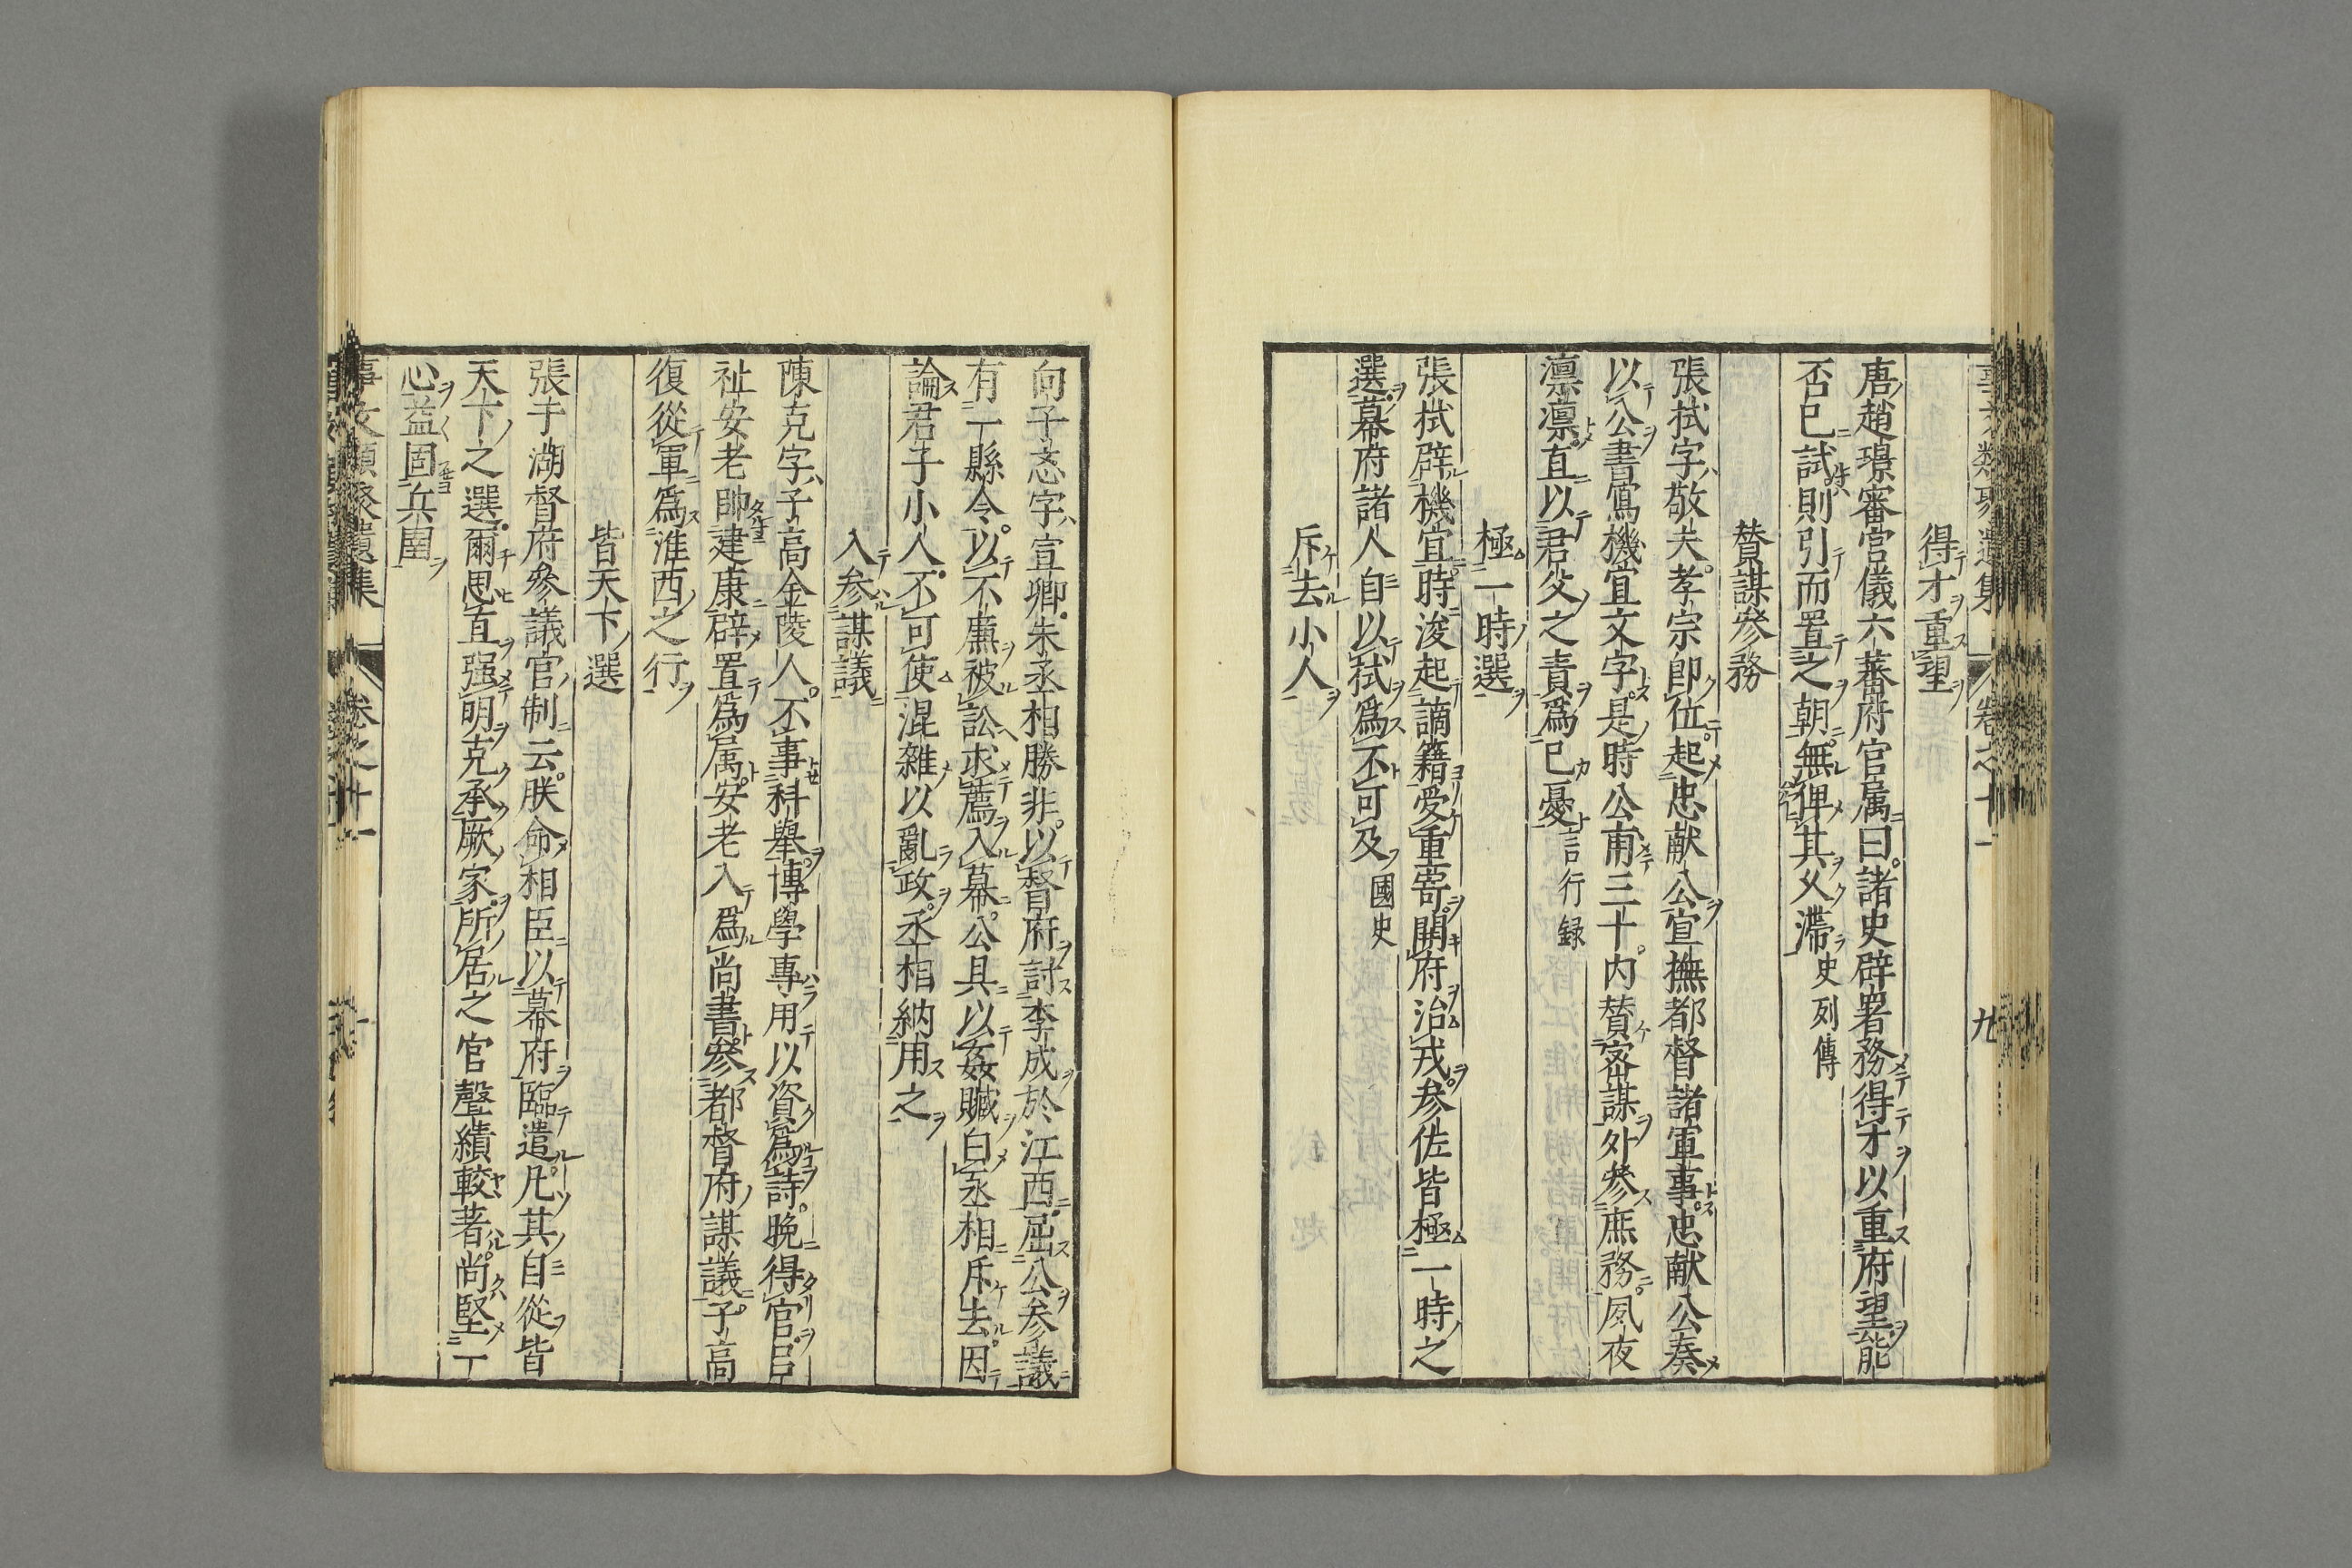 得才重望
唐趙璟審官儀六蕃府官属曰諸史辟署務得才以重府望能
否已試則引而置之朝無俾其久滯史列傳
賛謀參務
張栻字敬夫孝宗即位起忠献公宣撫都督諸軍事忠献公奏
以公書寫機宜文字是時公甫三十内賛宻謀外參庶務夙夜
凛凛直以君父之責爲已憂言行録
極一時選
張栻辟機宜時浚起謫籍受重寄開府治戎参佐皆極一時之
選幕府諸人自以栻爲不可及國史
斥去小人
向子忞字宣卿朱丞相勝非以督府討李成於江西屈公参議
有一縣令以不㢘被訟求薦入幕公具以姦贓白丞相斥去因
論君子小人不可使混雜以亂政丞相納用之
入参謀議
陳克字子高金陵人不事科舉博學專用以資爲詩晩得官吕
祉安老帥建康辟置爲属安老入爲尚書參都督府謀議子高
復從軍爲淮西之行
皆天下選
張于湖督府參議官制云朕命相臣以幕府臨遣凡其自從皆
天下之選爾思直强明克承厥家所居之官聲績較著尚堅一
心益固兵圉
事文類聚遺集 卷之十一